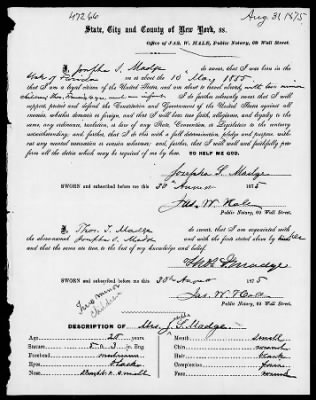 47266
Aug. 31 1875
State, City and County of New York, ss.
Office of JAS. W. HALE, Public Notary, 63 Wall Street.
I, Josepha S. Madge do swear, that I was born in the
State of Florida on or about the 10th May 1855
that I am a legal citizen of the United States and am about to travel abroad, with two minor
children
I do further solemnly swear that I will
support, protect and defend the Constitution and Government of the United States against all
enemies, whether domestic or foreign, and that I will bear true faith, allegiance, and loyalty to the
same, any ordinance, resolution, or law of any State, Convention, or Legislature to the contrary
notwithstanding, and further, that I do this with a full determination, pledge and purpose, with-
out any mental reservation or evasion whatever; and, further, that I will well and faithfully per-
form all the duties which may be required of me by law. SO HELP ME GOD.
Josepha S. Madge
SWORN and subscribed before me this 30 August 1875
Jas. W. Hale
Public Notary, 63 Wall Street.
I, Thos. T. Madge do swear, that I am acquainted with
the above-named Josepha S. Madge and with the facts stated above by her
and that the same are true to the best of my knowledge and belief.
SWORN and subscribed before me this 30th August 1875
Jas. W. Hale
Public Notary, 63 Wall Street.
Two minor
children
DESCRIPTION OF Mrs. J. S. Madge.
Age, 20 years
Stature, 5 ft. 3 in. Eng.
Forehead, medium
Eyes, black
Nose, small
Mouth, small
Chin, round
Hair, black
Complexion,
Face, round